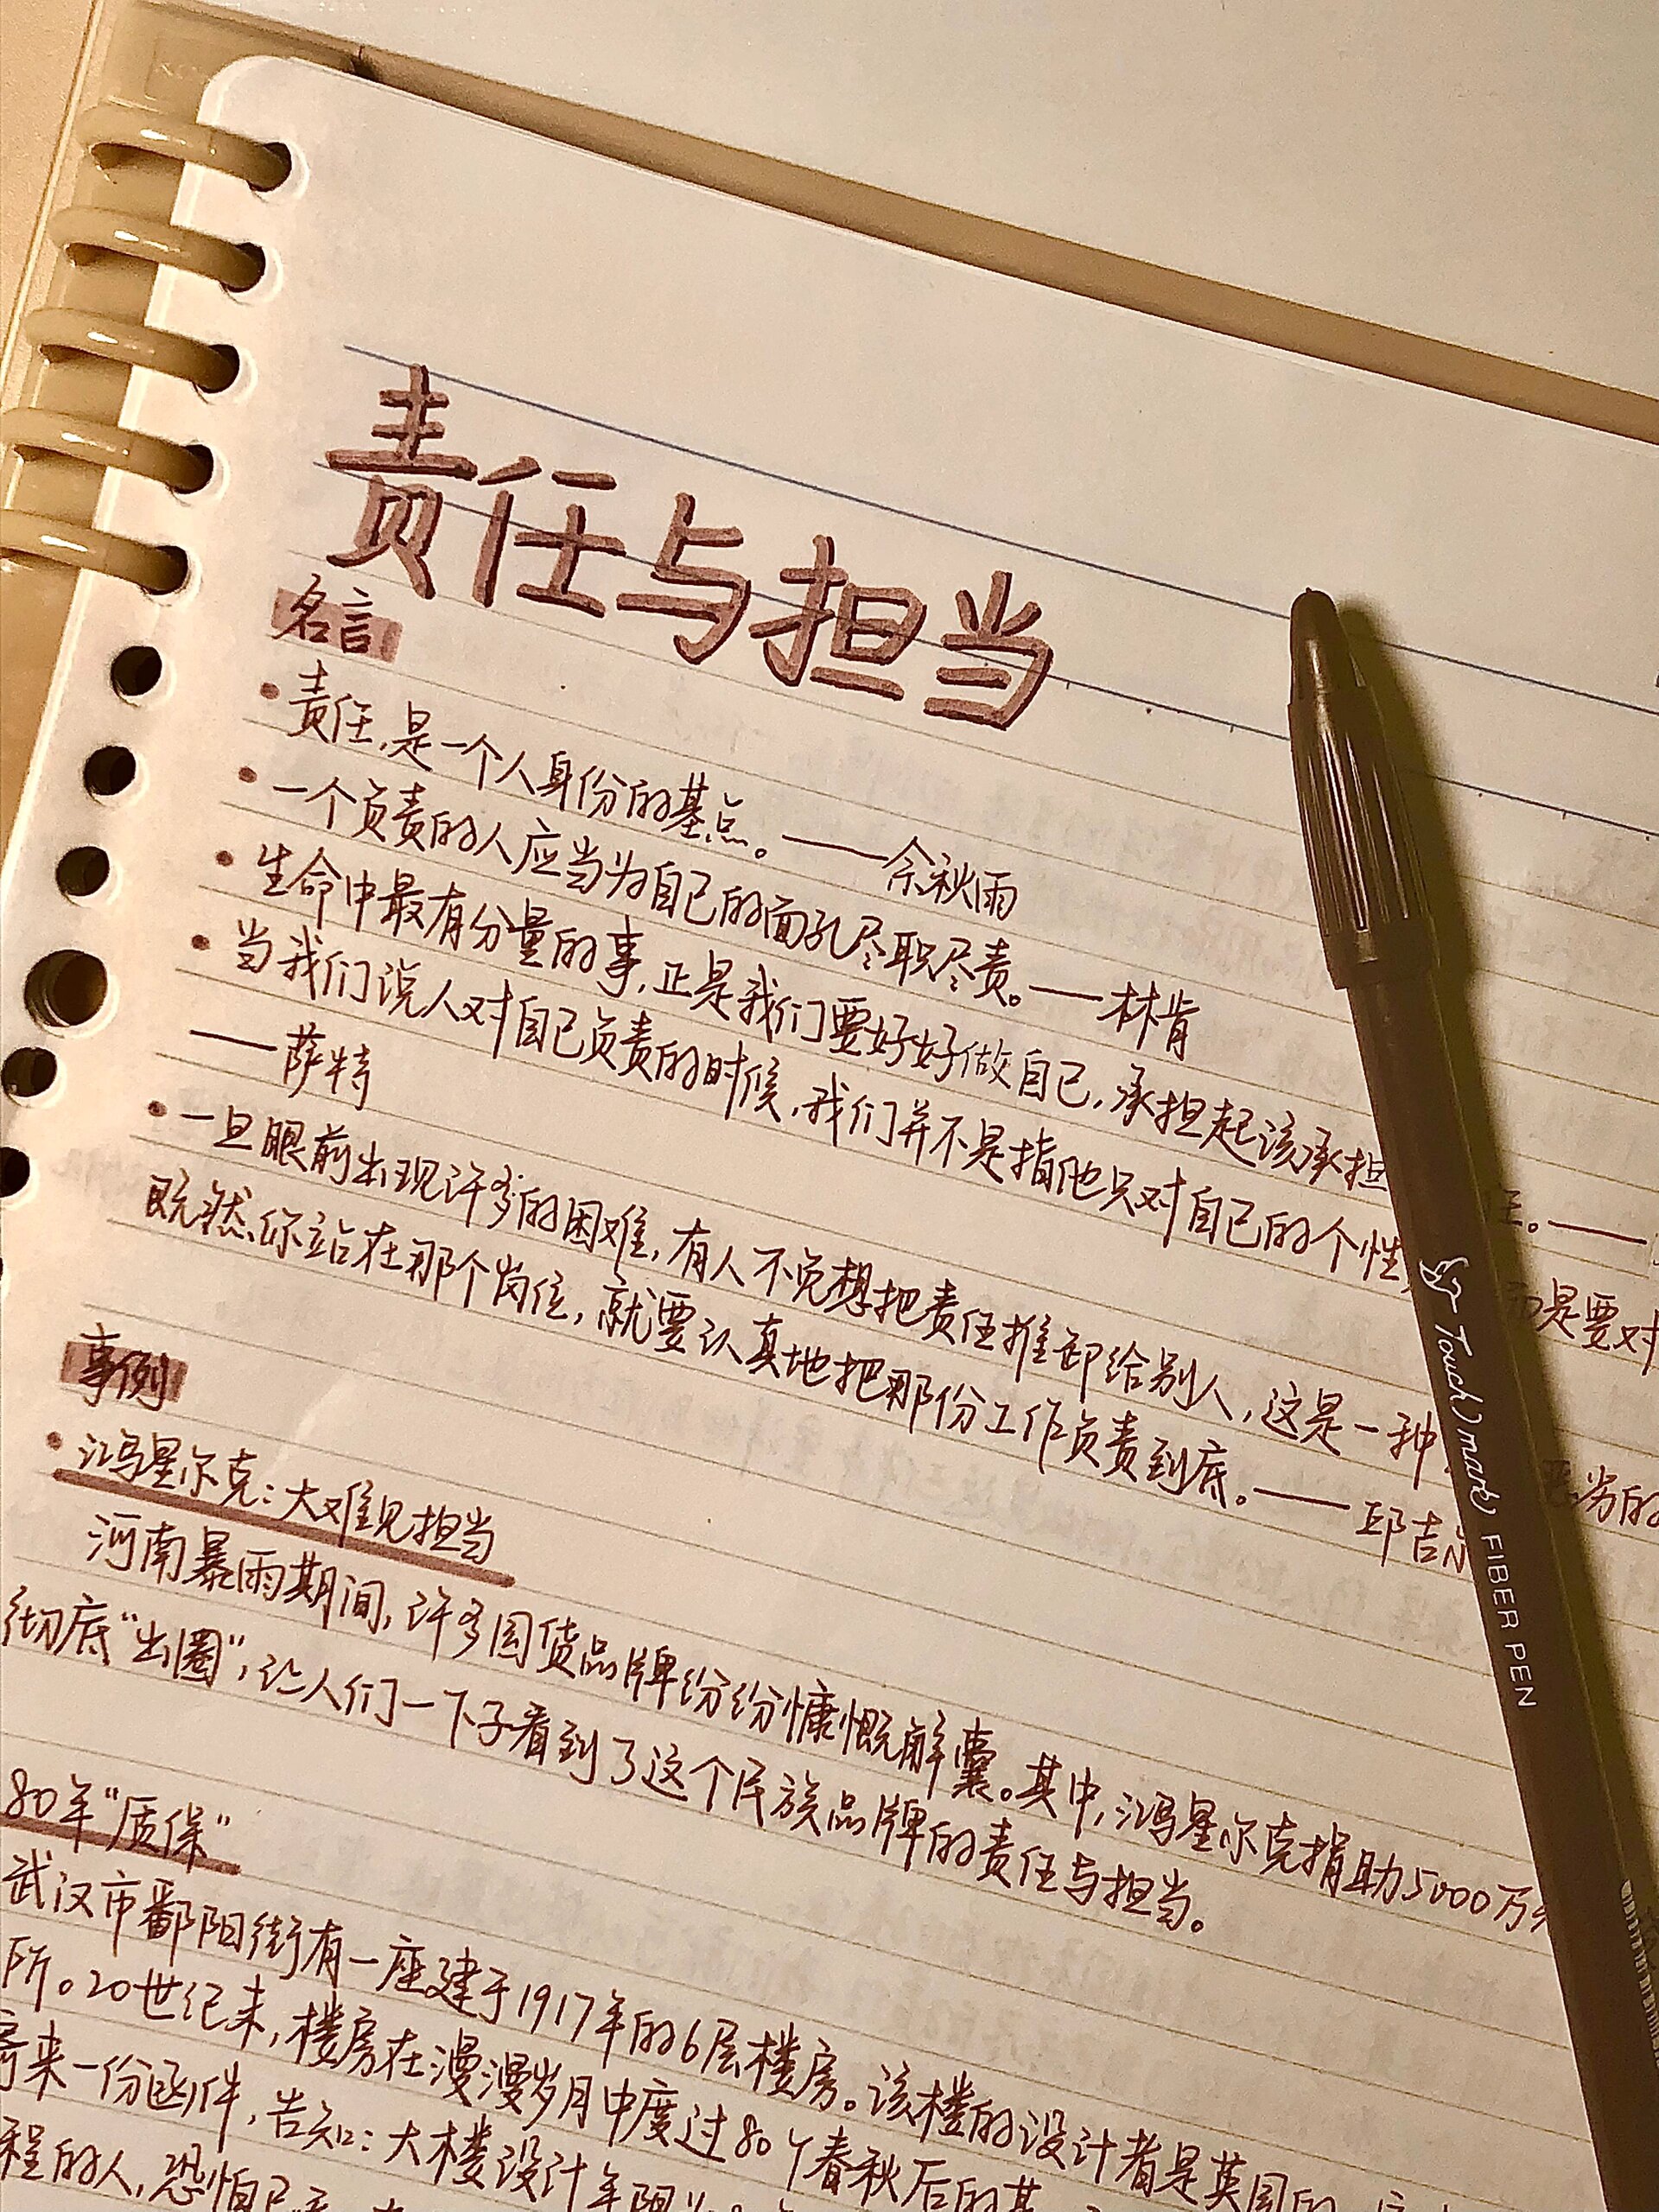 责任与担当
名言
·责任,是一个人身份的基点。——余秋雨
·一个负责的人应当为自己的面孔尽职尽责。——林肯
·生命中最有分量的事,正是我们要好好做自己,承担起该承担 ——
·当我们说人对自己负责的时候,我们并不是指他只对自己的个性 而是要对
——萨特
·一旦眼前出现许多的困难,有人不免想把责任推卸给别人,这是一种 恶劣的
既然你站在那个岗位,就要认真地把那份工作负责到底。——邱吉尔
事例
·鸿星尔克:大难见担当
河南暴雨期间,许多国货品牌纷纷慷慨解囊。其中,鸿星尔克捐助5000万
彻底“出圈”,让人们一下子看到了这个民族品牌的责任与担当。
80年“质保”
武汉市鄱阳街有一座建于1917年的6层楼房。该楼的设计者是英国的
所。20世纪末,楼房在漫漫岁月中度过80个春秋后的某
寄来一份函件,告知:大楼设计年限为
程的人,恐怕已
Touch mark FIBER PEN